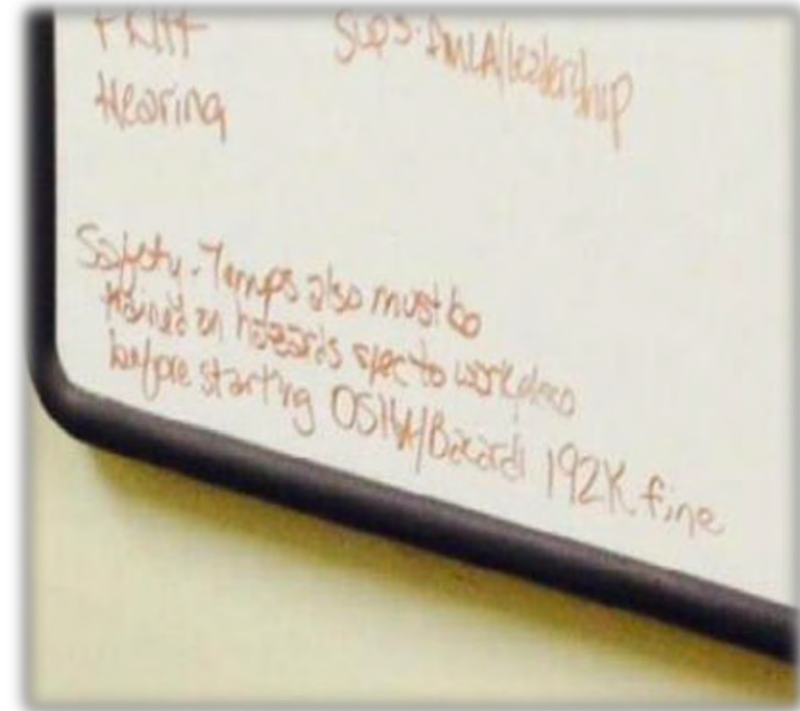 Hearing
Safety. Temps also must be
trained on hazards spec to workplace
before starting OSHA/Bacardi 192K fine